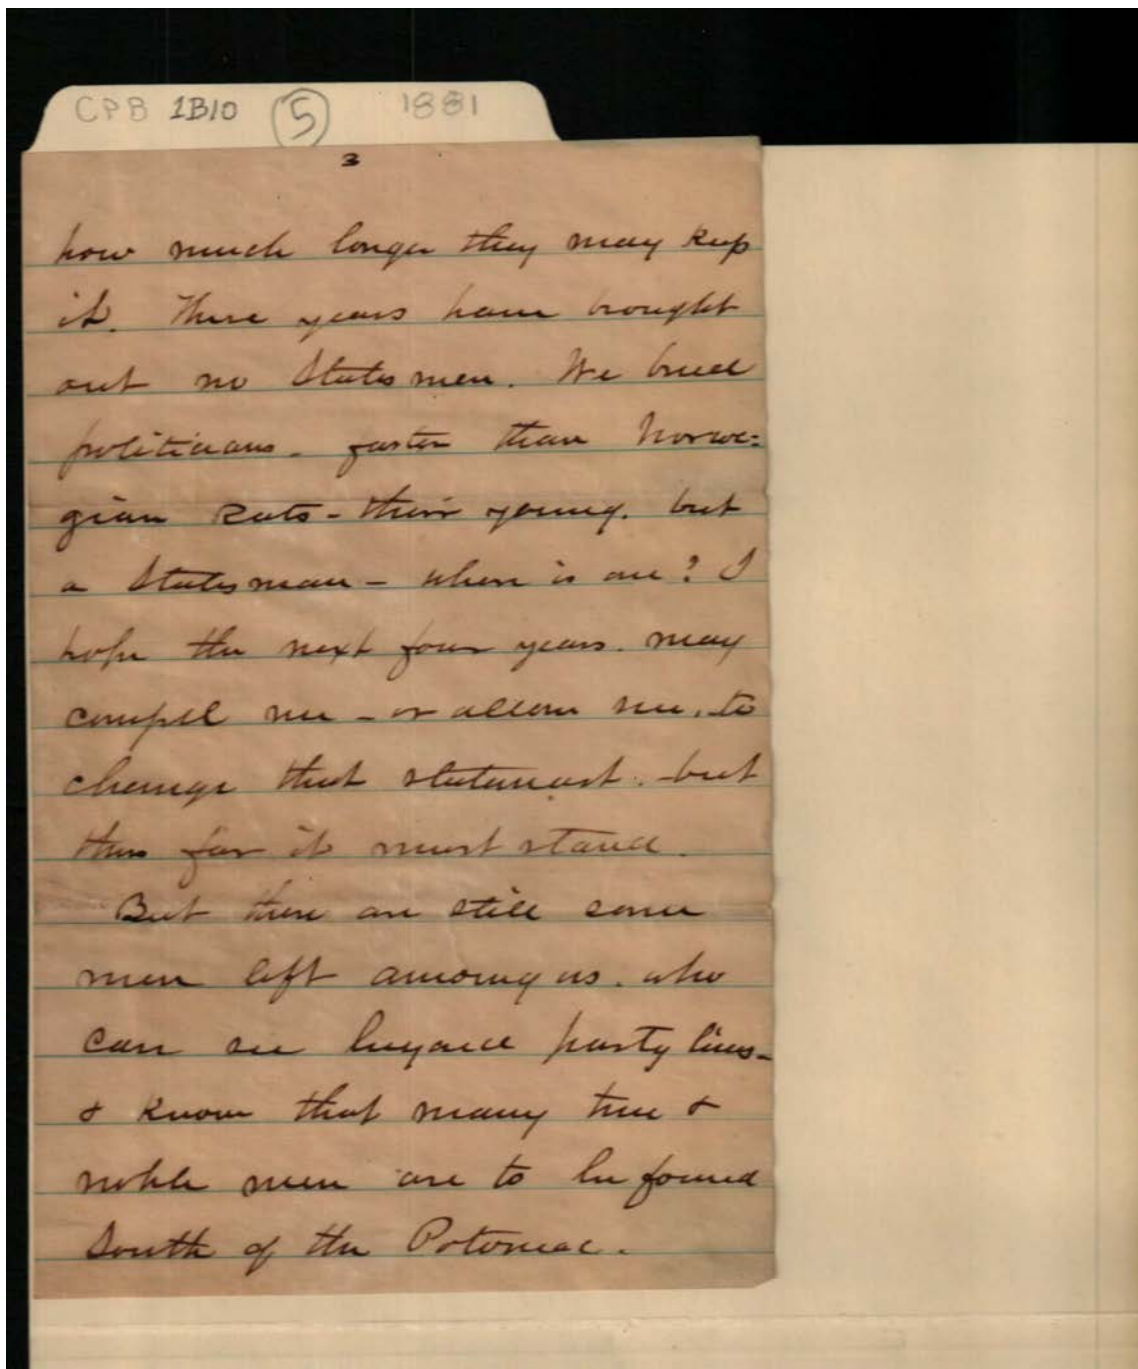 CPB 1B10 (5) 1881
3
how much longer they may keep
it. These years have brought
out no Statesmen. We breed
politicians - faster than Norwe=
gian Rats - their young. but
a Statesman - where is one? I
hope the next four years. may
compel me - or allow me, to
change that statement. but
thus far it must stand.
But there are still some
men left among us. who
can see beyond party lines -
& know that many true &
noble men are to be found
South of the Potomac.